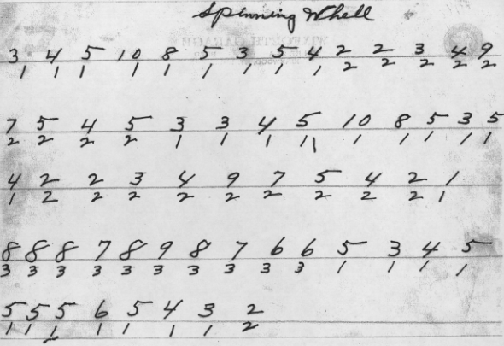 Spinning Whell
3 4 5 10 8 5 3 5 4 2 2 3 4 9
1 1 1 1 1 1 1 1 1 2 2 2 2 2
7 5 4 5 3 3 4 5 10 8 5 3 5
2 2 2 2 1 1 1 1 1 1 1 1 1 1
4 2 2 3 4 9 7 5 4 2 1
1 2 2 2 2 2 2 2 2 2 1
8 8 8 7 8 9 8 7 6 6 5 3 4 5
3 3 3 3 3 3 3 3 3 3 1 1 1 1
5 5 5 6 5 4 3 2
1 1 1 1 1 1 1 2